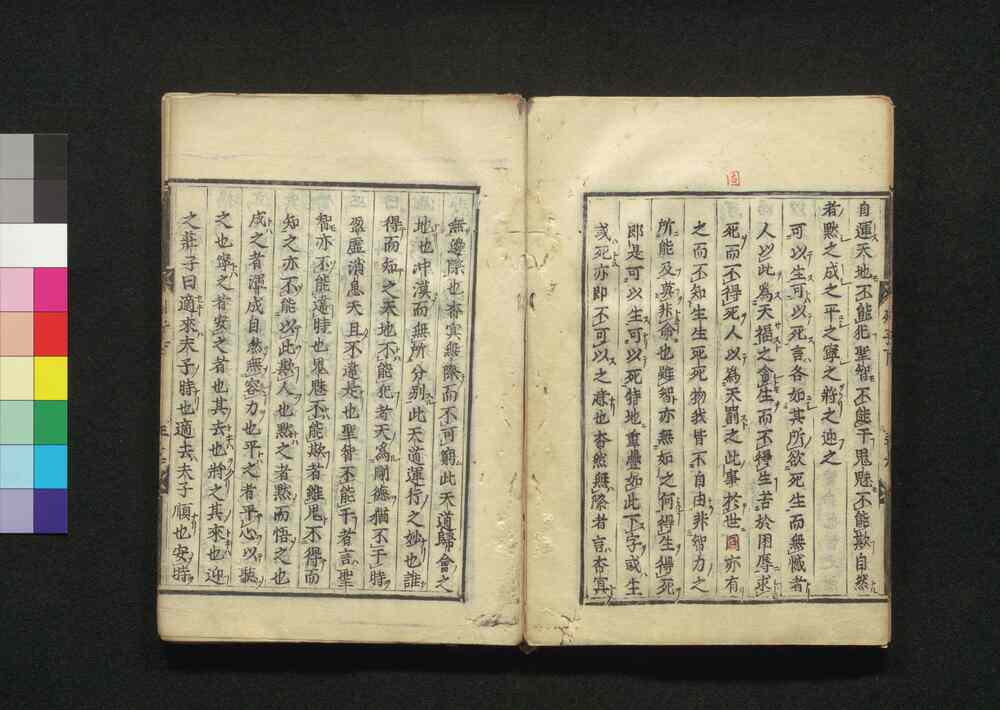 自運天地不能犯聖智不能干鬼魅不能欺自然
者默之成之平之寧之將之迎之
可以生可以死言各如其所欲死生而無憾者
人以此為天福之貪生而不得生苦於困辱求
死而不得死人以為天罰之此事於世固亦有
之而不知生生死死物我皆不自由非智力之
所能及莫非命也雖智亦無如之何得生得死
即是可以生可以死特地重疊如此下字或生
或死亦即不可以之意也杳然無際者言杳冥
無邊際也杳冥無際而不可窮此天道歸會之
地也沖漠而無所分別此天道運行之妙也誰
得而知之天地不能犯者天為剛德猶不干時
盈虛消息天且不違是也聖智不能干者言聖
智亦不能違時也鬼魅不能欺者雖鬼不得而
知之亦不能以此欺人也默之者默而悟之也
成之者渾成自然無容力也平之者平心以聽
之也寧之者安之者也其去也將之其來也迎
之莊子曰適來夫子時也適去夫子順也安時
固